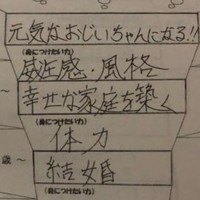 元気なおじいちゃんになる!!
(身につけたい力)
威圧感・風格
幸せな家庭を築く
(身につけたい力)
体力
歳~
結婚
(身につけたい力)